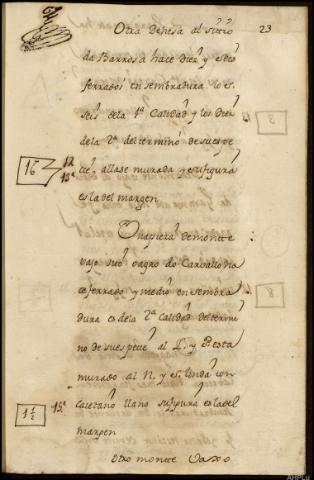 Otra Dehesa al sitio
23
da Barrosa hace Diez y seis
ferrados en sembradura los
seis dela 1ª Calidad y los Diez
dela 2ª del termino de su espe
cie, allase murada y su figura
es la del margen
16
12
13ª
Una pieza de monte
vajo sitio vagro do Carvallo ha
ce ferrado y medio en sembra
dura es dela 2ª Calidad del termi
no de su especie al L. y P. esta
murado al N. y S. linda con
Caietano llano su figura es la del
margen
1 1/2
15ª
Otro monte Vaxo
3
8
AHPLu